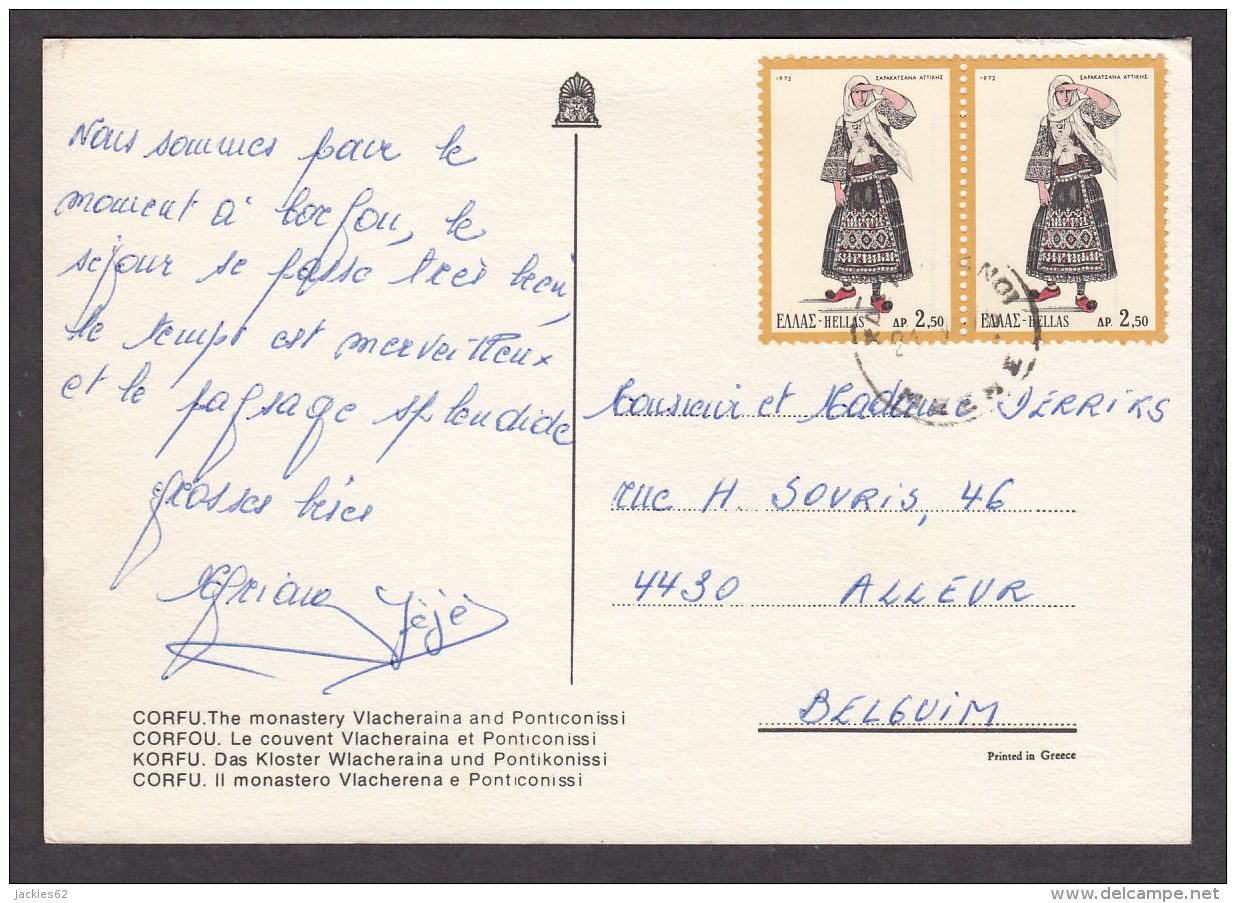 Nous sommes pour le
moment à Corfou, le
séjour se passe très bien,
le temps est merveilleux
et le paysage splendide
grosses bises
Jèjè
CORFU.The monastery Vlacheraina and Ponticonissi
CORFOU. Le couvent Vlacheraina et Ponticonissi
KORFU. Das Kloster Wlacheraina und Pontikonissi
CORFU. Il monastero Vlacherena e Ponticonissi
1972 ΣΑΡΑΚΑΤΣΑΝΑ ΑΤΤΙΚΗΣ
ΕΛΛΑΣ-HELLAS ΔΡ. 2,50
1972 ΣΑΡΑΚΑΤΣΑΝΑ ΑΤΤΙΚΗΣ
ΕΛΛΑΣ-HELLAS ΔΡ. 2,50
Monsieur et Madame DERRIKS
rue H. SOVRIS, 46
4430 ALLEUR
BELGUIM
Printed in Greece
jackies62